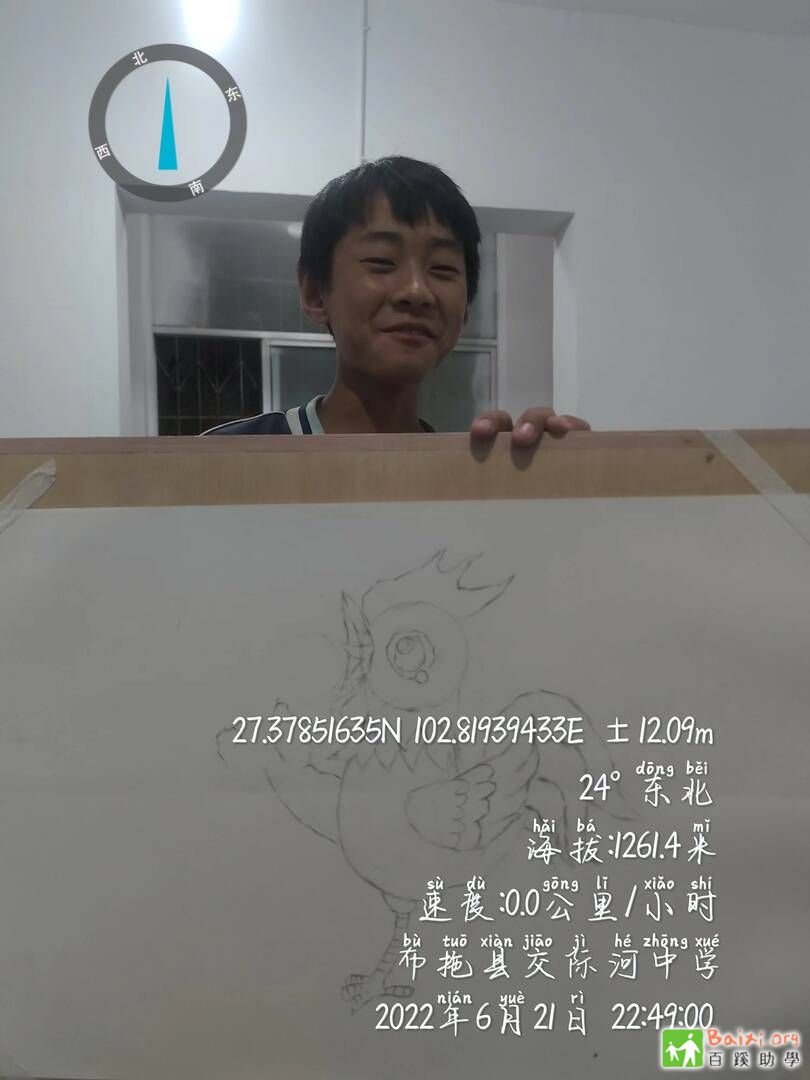 北
东
西
南
27.37851635N 102.81939433E ±12.09m
dōng běi
24° 东北
hǎi bá mǐ
海拔:1261.4米
sù dù gōng lǐ xiǎo shí
速度:0.0公里/小时
bù tuō xiàn jiāo jì hé zhōng xué
布拖县交际河中学
nián yuè rì
2022年6月21日 22:49:00
Baixi.org
百蹊助學